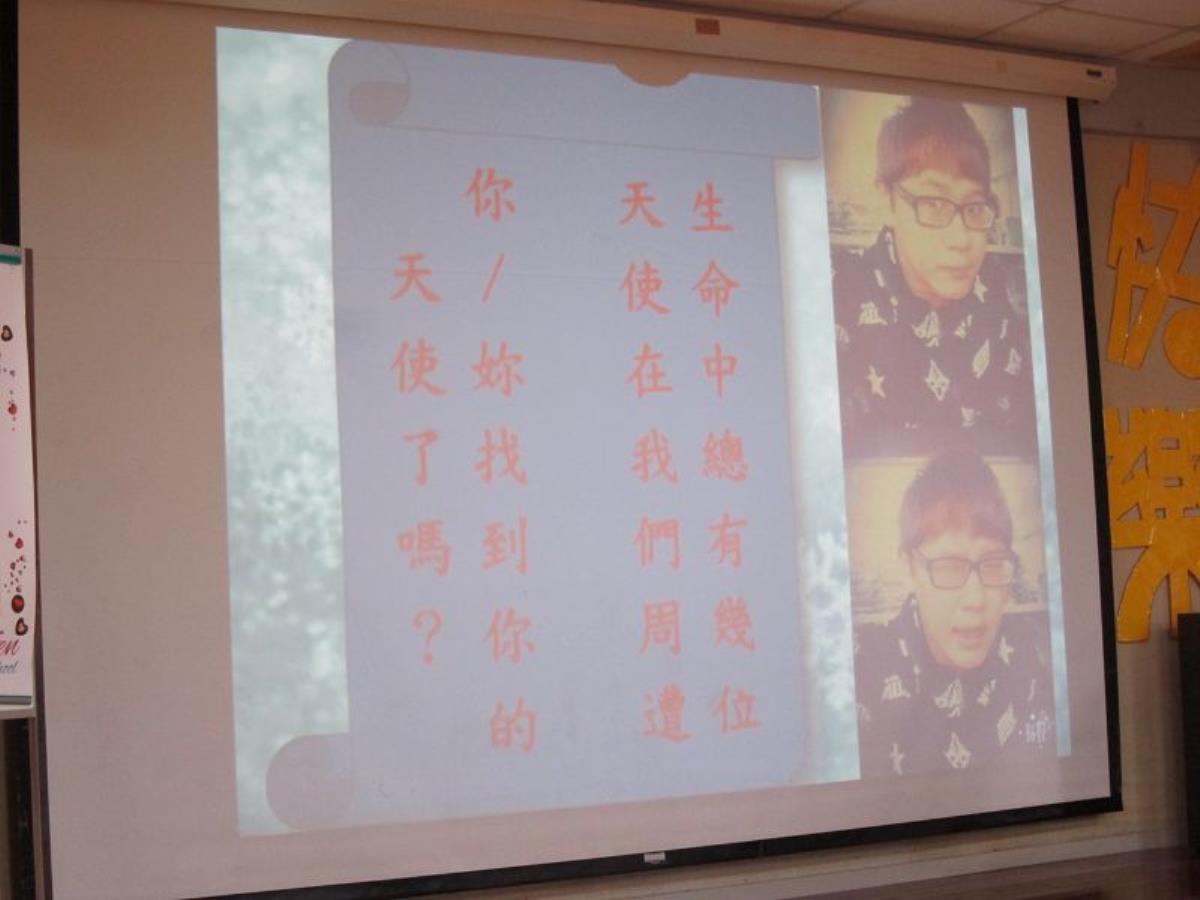 生命中總有幾位
天使在我們周遭
你/妳找到你的
天使了嗎?